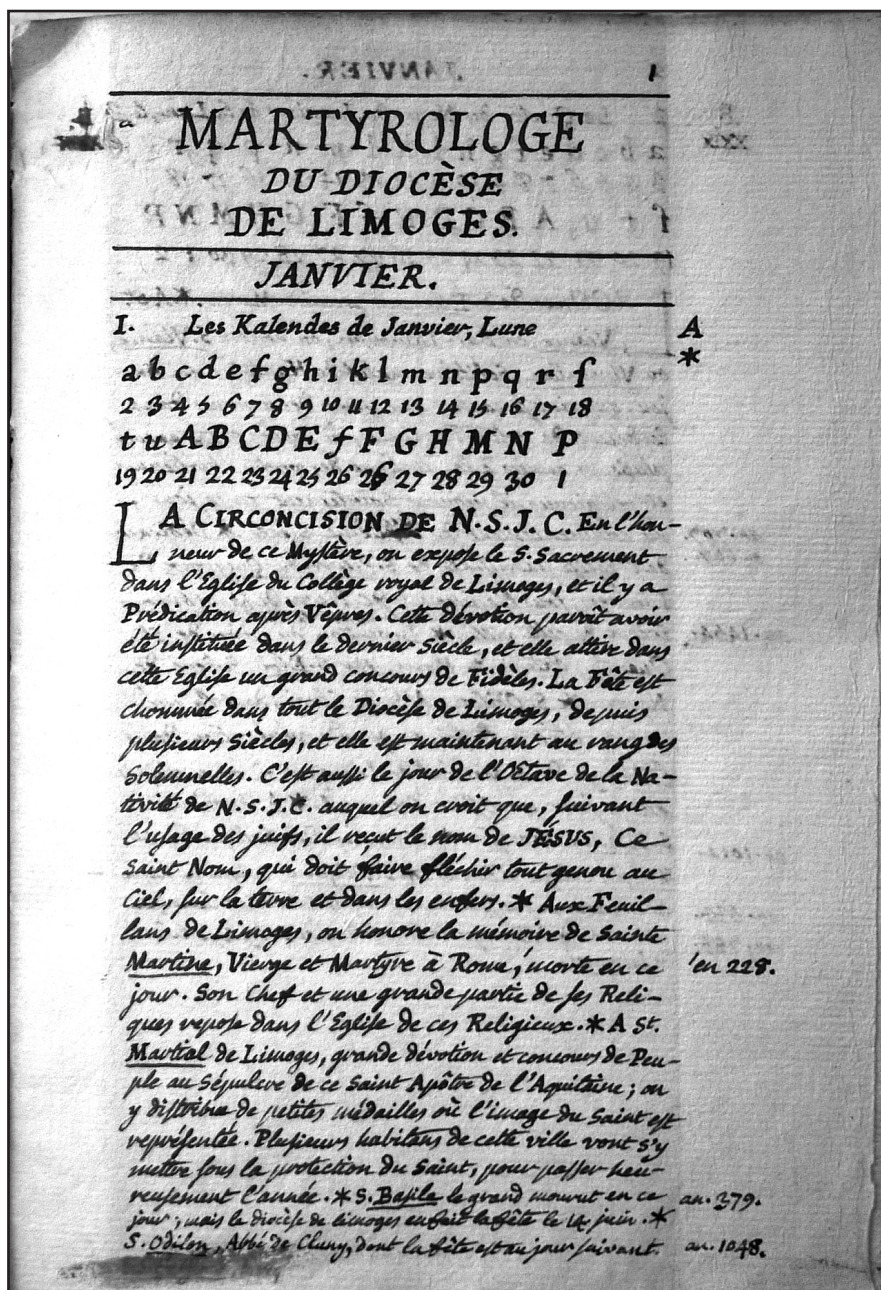 1
MARTYROLOGE
DU DIOCÈSE
DE LIMOGES.
JANVIER.
I. Les Kalendes de Janvier, Lune A
*
a b c d e f g h i k l m n p q r ſ
2 3 4 5 6 7 8 9 10 11 12 13 14 15 16 17 18
t u A B C D E f F G H M N P
19 20 21 22 23 24 25 26 26 27 28 29 30 1
LA CIRCONCISION DE N.S.J.C. En l'hon-
neur de ce Myſtère, on expoſe le S. Sacrement
dans l'Egliſe du Collège royal de Limoges, et il y a
Prédication après Vêpres. Cette dévotion paroît avoir
été inſtituée dans le dernier Siècle, et elle attire dans
cette Egliſe un grand concours de Fidèles. La Fête eſt
chommée dans tout le Diocèſe de Limoges, depuis
pluſieurs Siècles, et elle eſt maintenant au rang des
Solemnelles. C'eſt auſſi le jour de l'Octave de la Na-
tivité de N.S.J.C. auquel on croit que, ſuivant
l'uſage des juifs, il reçut le nom de JÉSUS, Ce
Saint Nom, qui doit faire fléchir tout genou au
Ciel, ſur la terre et dans les enfers. * Aux Feuil-
lans de Limoges, on honore la mémoire de Sainte
Martine, Vierge et Martyre à Rome, morte en ce 'en 228.
jour. Son Chef et une grande partie de ſes Reli-
ques repoſe dans l'Egliſe de ces Religieux. * A St.
Martial de Limoges, grande dévotion et concours de Peu-
ple au Sépulcre de ce Saint Apôtre de l'Aquitaine; on
y diſtribue de petites médailles où l'image du Saint eſt
repréſentée. Pluſieurs habitans de cette ville vont s'y
mettre ſous la protection du Saint, pour paſſer heu-
reuſement l'année. * S. Baſile le grand mourut en ce an. 379.
jour; mais le diocèſe de limoges en fait la fête le 14 juin. *
S. Odilon, Abbé de Cluny, dont la fête eſt au jour ſuivant. an. 1048.